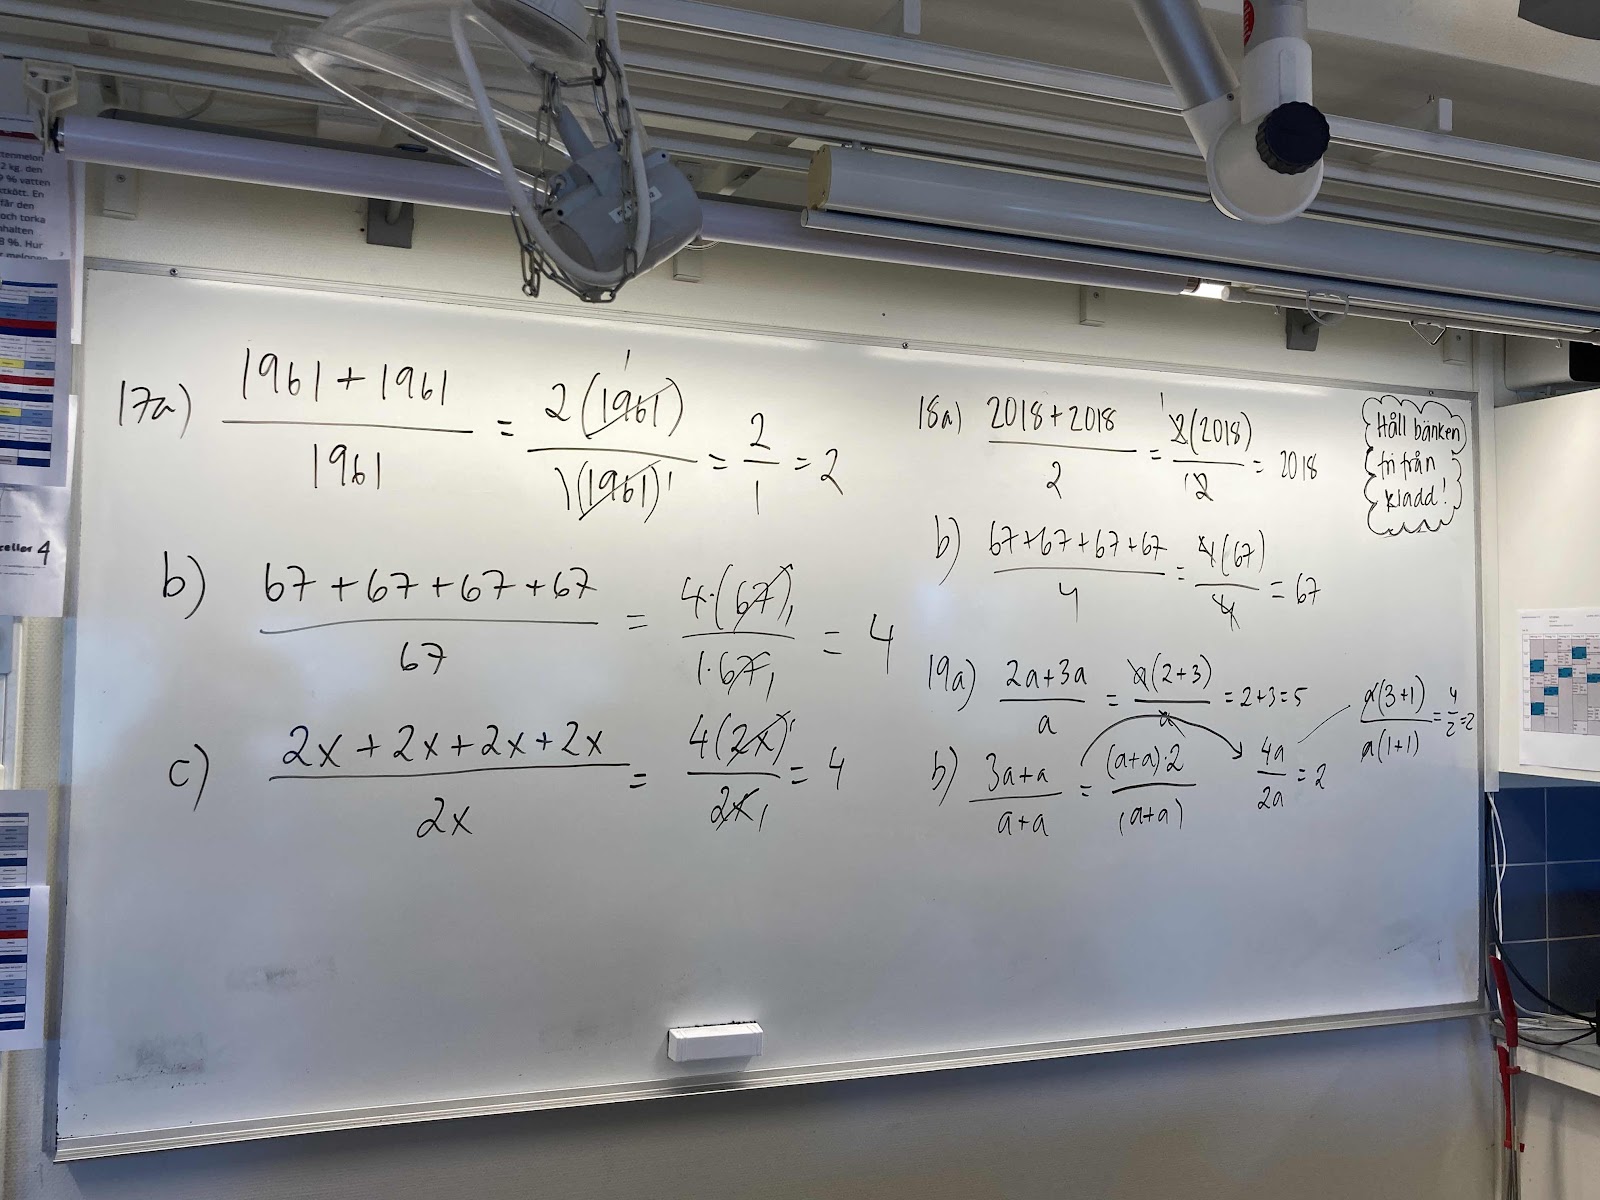 17a) (1961 + 1961)/1961 = 2(1961)/1(1961) = 2/1 = 2
b) (67 + 67 + 67 + 67)/67 = 4·(67)/1·67 = 4
c) (2x + 2x + 2x + 2x)/2x = 4(2x)/2x = 4
18a) (2018 + 2018)/2 = 2(2018)/2 = 2018
b) (67 + 67 + 67 + 67)/4 = 4(67)/4 = 67
19a) (2a + 3a)/a = a(2 + 3)/a = 2 + 3 = 5
b) (3a + a)/(a + a) = (a + a)·2/(a + a) 4a/2a = 2
a(3 + 1)/a(1 + 1) = 4/2 = 2
Håll bänken
fri från
kladd!
tenmelon
2 kg. den
9 % vatten
ktkött. En
får den
och torka
nhalten
8 %. Hur
r melonen
celler 4